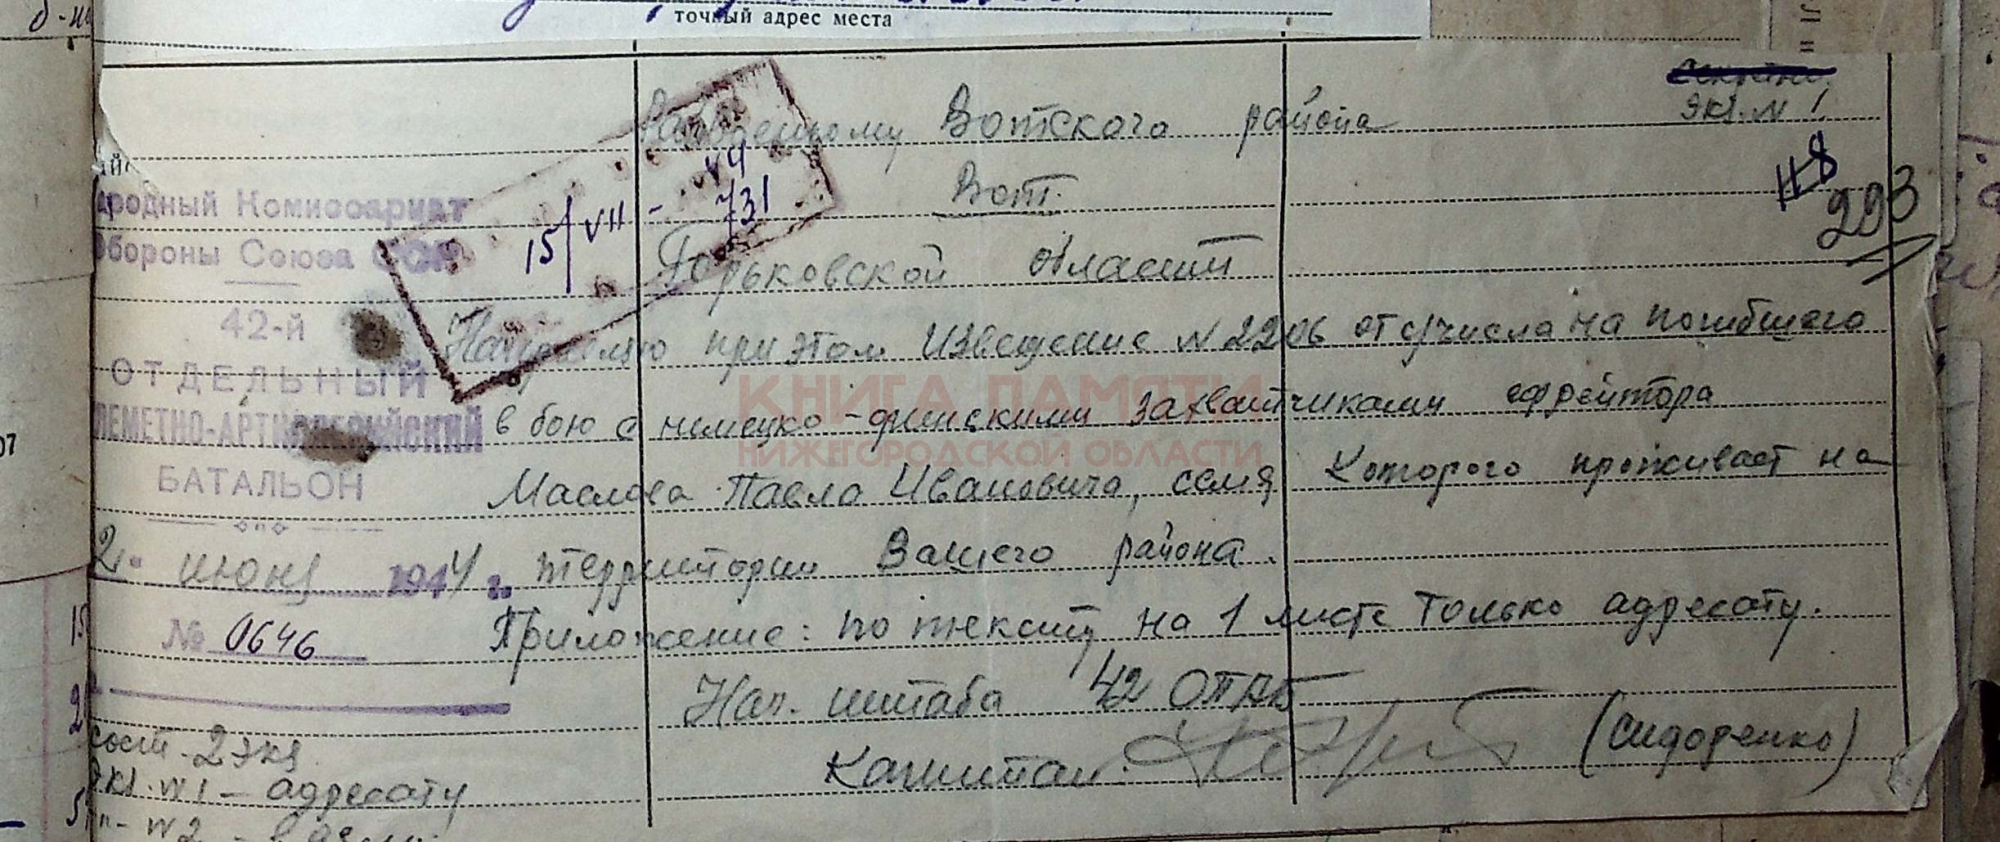 точный адрес места
Секретно
экз. N 1
Райвоенкому Вотского района
Вот.
Горьковской области
15/VII - 44
731
Н8
223
Народный Комиссариат
Обороны Союза ССР
42-й
ОТДЕЛЬНЫЙ
ЛЕМЕТНО-АРТИЛЛЕРИЙСКИЙ
БАТАЛЬОН
2. июня 1944 г.
№ 0646
Направляю при этом извещение N 2206 от с/числа на погибшего
в бою с немецко-финскими захватчиками ефрейтора
Маслова Павла Ивановича, семья которого проживает на
территории Вашего района.
Приложение: по тексту на 1 листе только адресату.
Нач. штаба 42 ОПАБ
Капитан (Сидоренко)
сост. 2 экз
экз. N 1 - адресату
N 2 -
КНИГА ПАМЯТИ
НИЖЕГОРОДСКОЙ ОБЛАСТИ